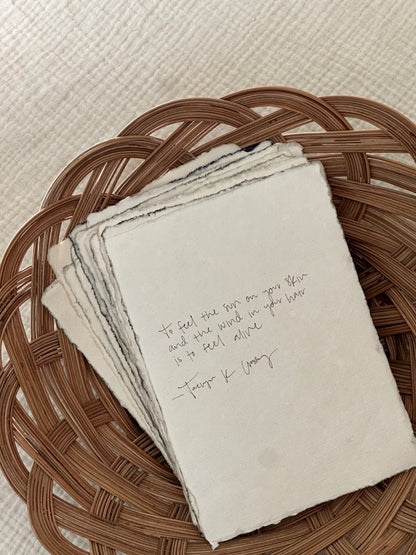 to feel the sun on your skin
and the wind in your hair
is to feel alive